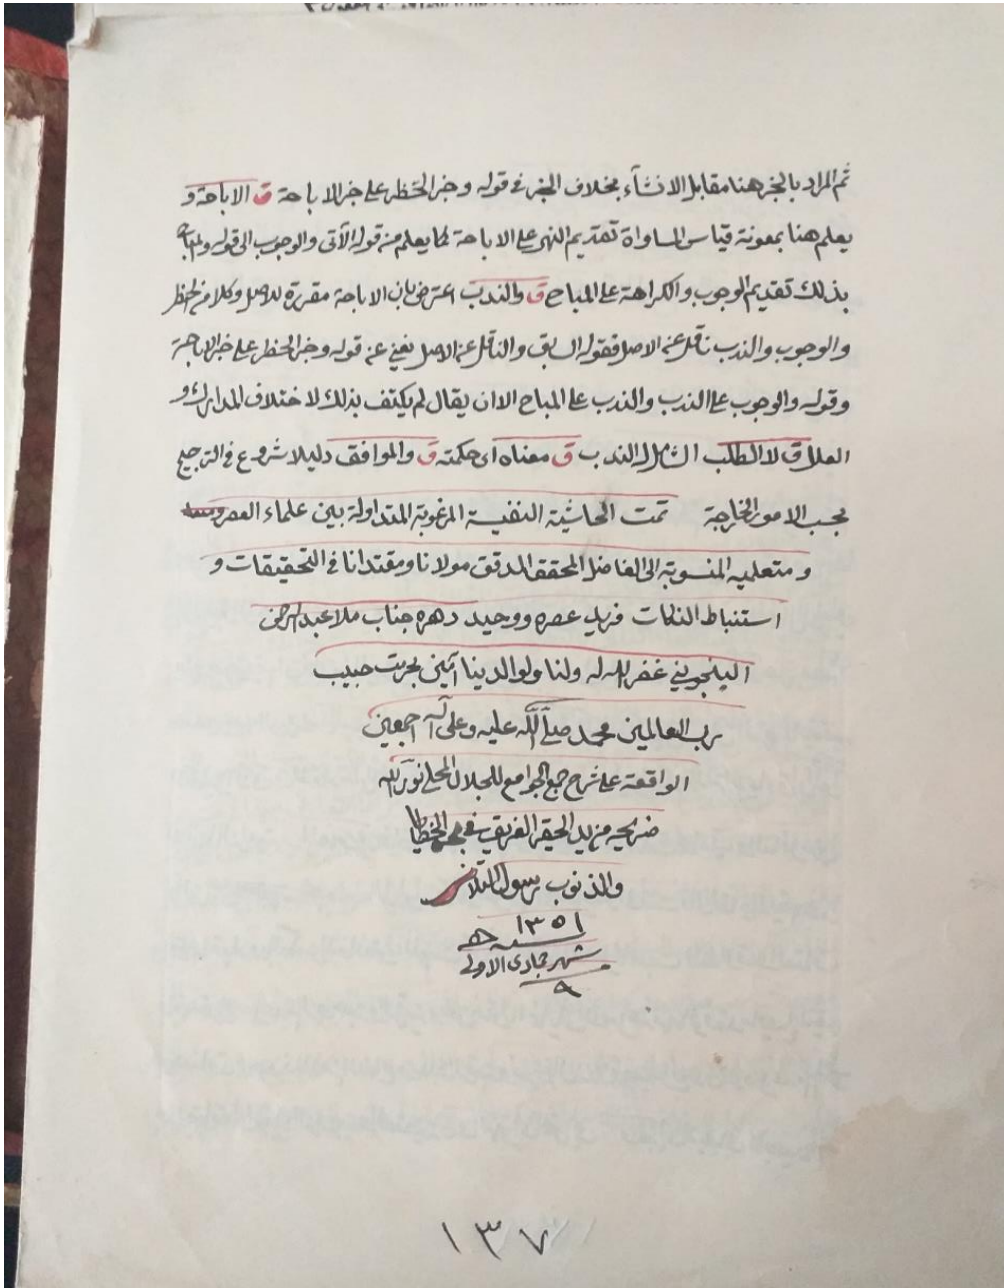 ثم المراد بالخبر هنا مقابل الانشآء بخلاف الخبر في قوله وخبر الحظر على خبر الاباحة ق الاباحة و
يعلم هنا بمعونة قياس المساواة تقديم النهي على الاباحة كما يعلم من قوله الآتى والوجوب الى قوله
بذلك تقديم الوجوب والكراهة على المباح ق والندب اعترض بان الاباحة مقررة للاصل وكلا من الحظر
والوجوب والندب ناقل عن الاصل فقوله السابق والناقل عن الاصل يغني عن قوله وخبر الحظر على خبر الاباحة
وقوله والوجوب على الندب والندب على المباح الا ان يقال لم يكتف بذلك لاختلاف المدارك و
العلل ق لا الطلب الشامل للندب ق معناه اى حكمته ق والموافق دليلا شروع في الترجيح
بحسب الامور الخارجة تمت الحاشية النفيسة المرغوبة المتداولة بين علماء العصر
و متعلميه المنسوبة الى الفاضل المحقق المدقق مولانا ومقتدانا في التحقيقات و
استنباط النكات فريد عصره ووحيد دهره جناب ملا عبد الرحمن
الپنجويني غفر الله له ولنا ولوالدينا آمين بحرمت حبيب
رب العالمين محمد صلى الله عليه وعلى آله اجمعين
الواقعة على شرح جمع الجوامع للجلال المحلي نور الله
ضريحه من يد الحقير الغريق في الخطايا
والذنوب رسول
١٣٥١
سنه هـ
شهر جمادى الاولى
٩
١٣٧